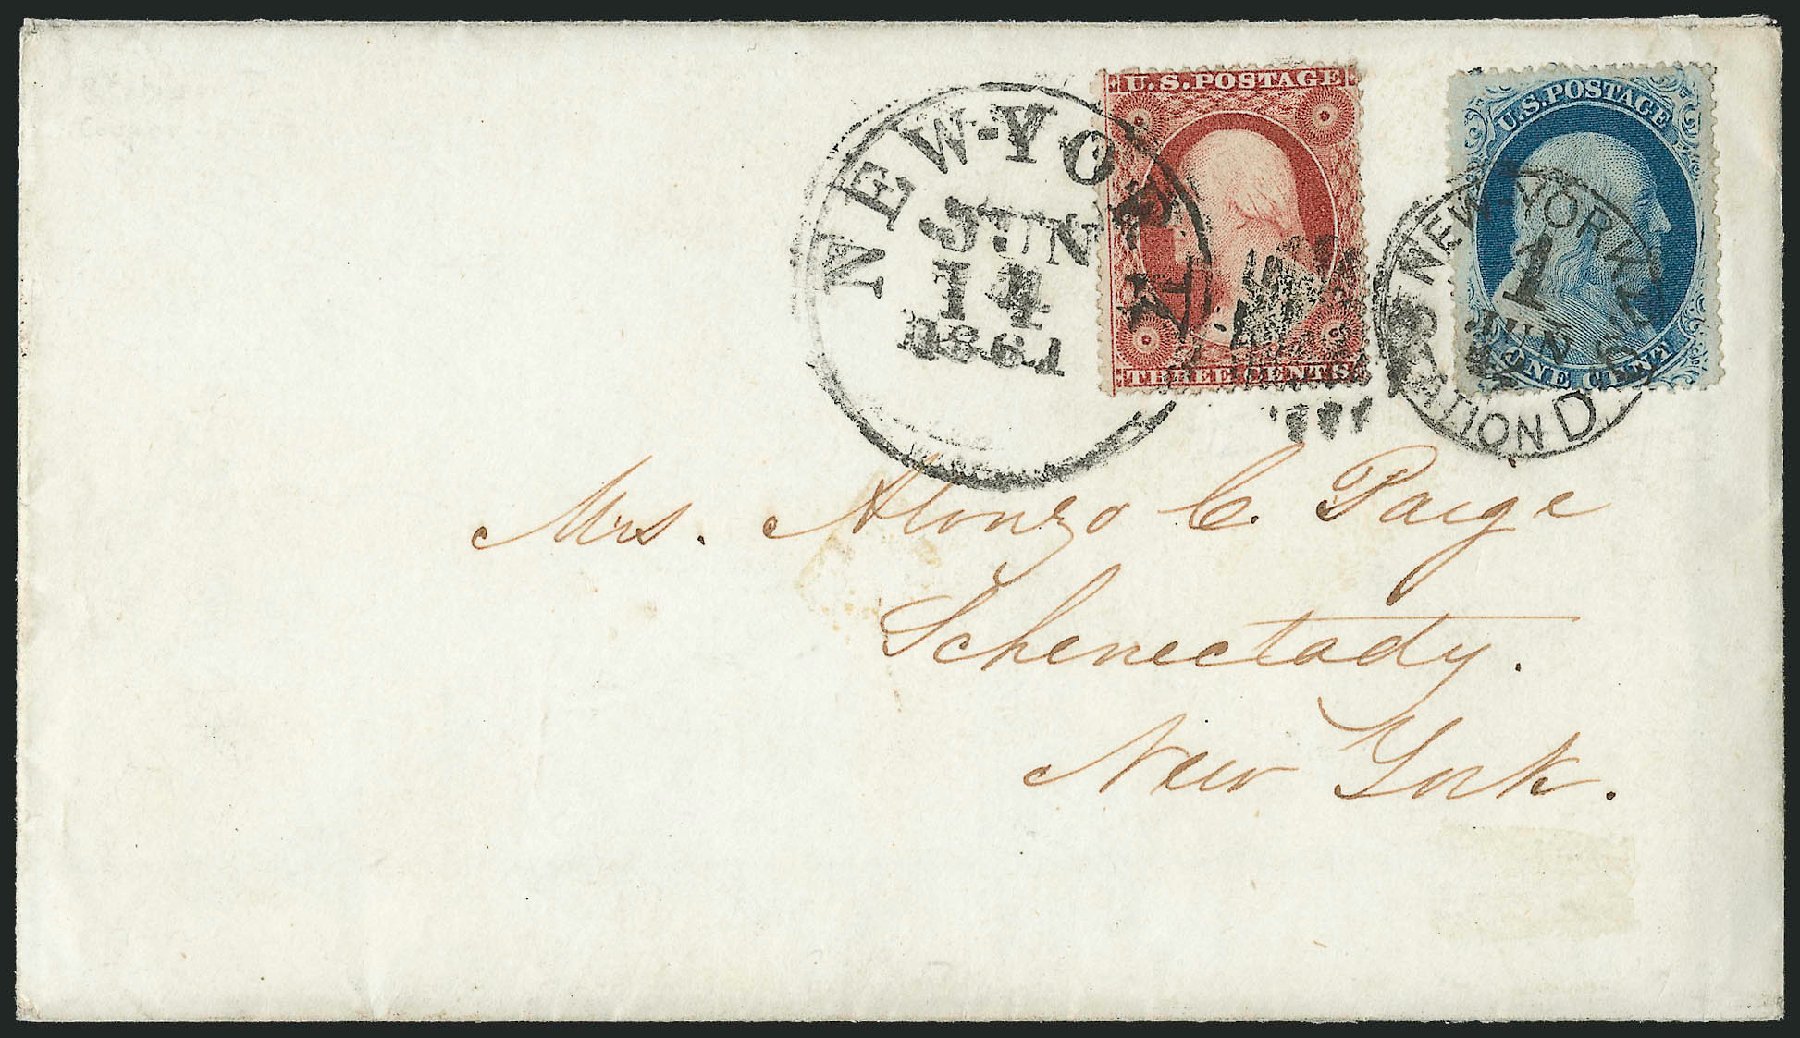 U.S.POSTAGE
THREE CENTS
U.S.POSTAGE
ONE CENT
NEW-YORK
JUN
14
1861
NEW-YORK
1
JUN
STATION D.
Mrs. Alonzo C. Paige
Schenectady.
New York.